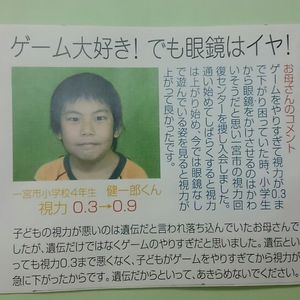 ゲーム大好き！でも眼鏡はイヤ！
お母さんのコメント
ゲームをやりすぎて視力が0.3ま
で下がり困っていた時、小学生
から眼鏡をかけさせるのはか
わいそうだと思い一宮市の視力回
復センターを捜し入会しました。
通い始めてしばらくすると視力
は上がり始め、今では眼鏡なし
で遊んでいる姿を見ると視力が
上がって良かったです。
一宮市小学校4年生　健一郎くん
視力 0.3→0.9
子どもの視力が悪いのは遺伝だと言われ落ち込んでいたお母さんで
したが、遺伝だけではなくゲームのやりすぎだと思いました。遺伝とい
っても視力0.3まで悪くなく、子どもがゲームをやりすぎてから視力が
急に下がったからです。遺伝だからといって、あきらめないでください。